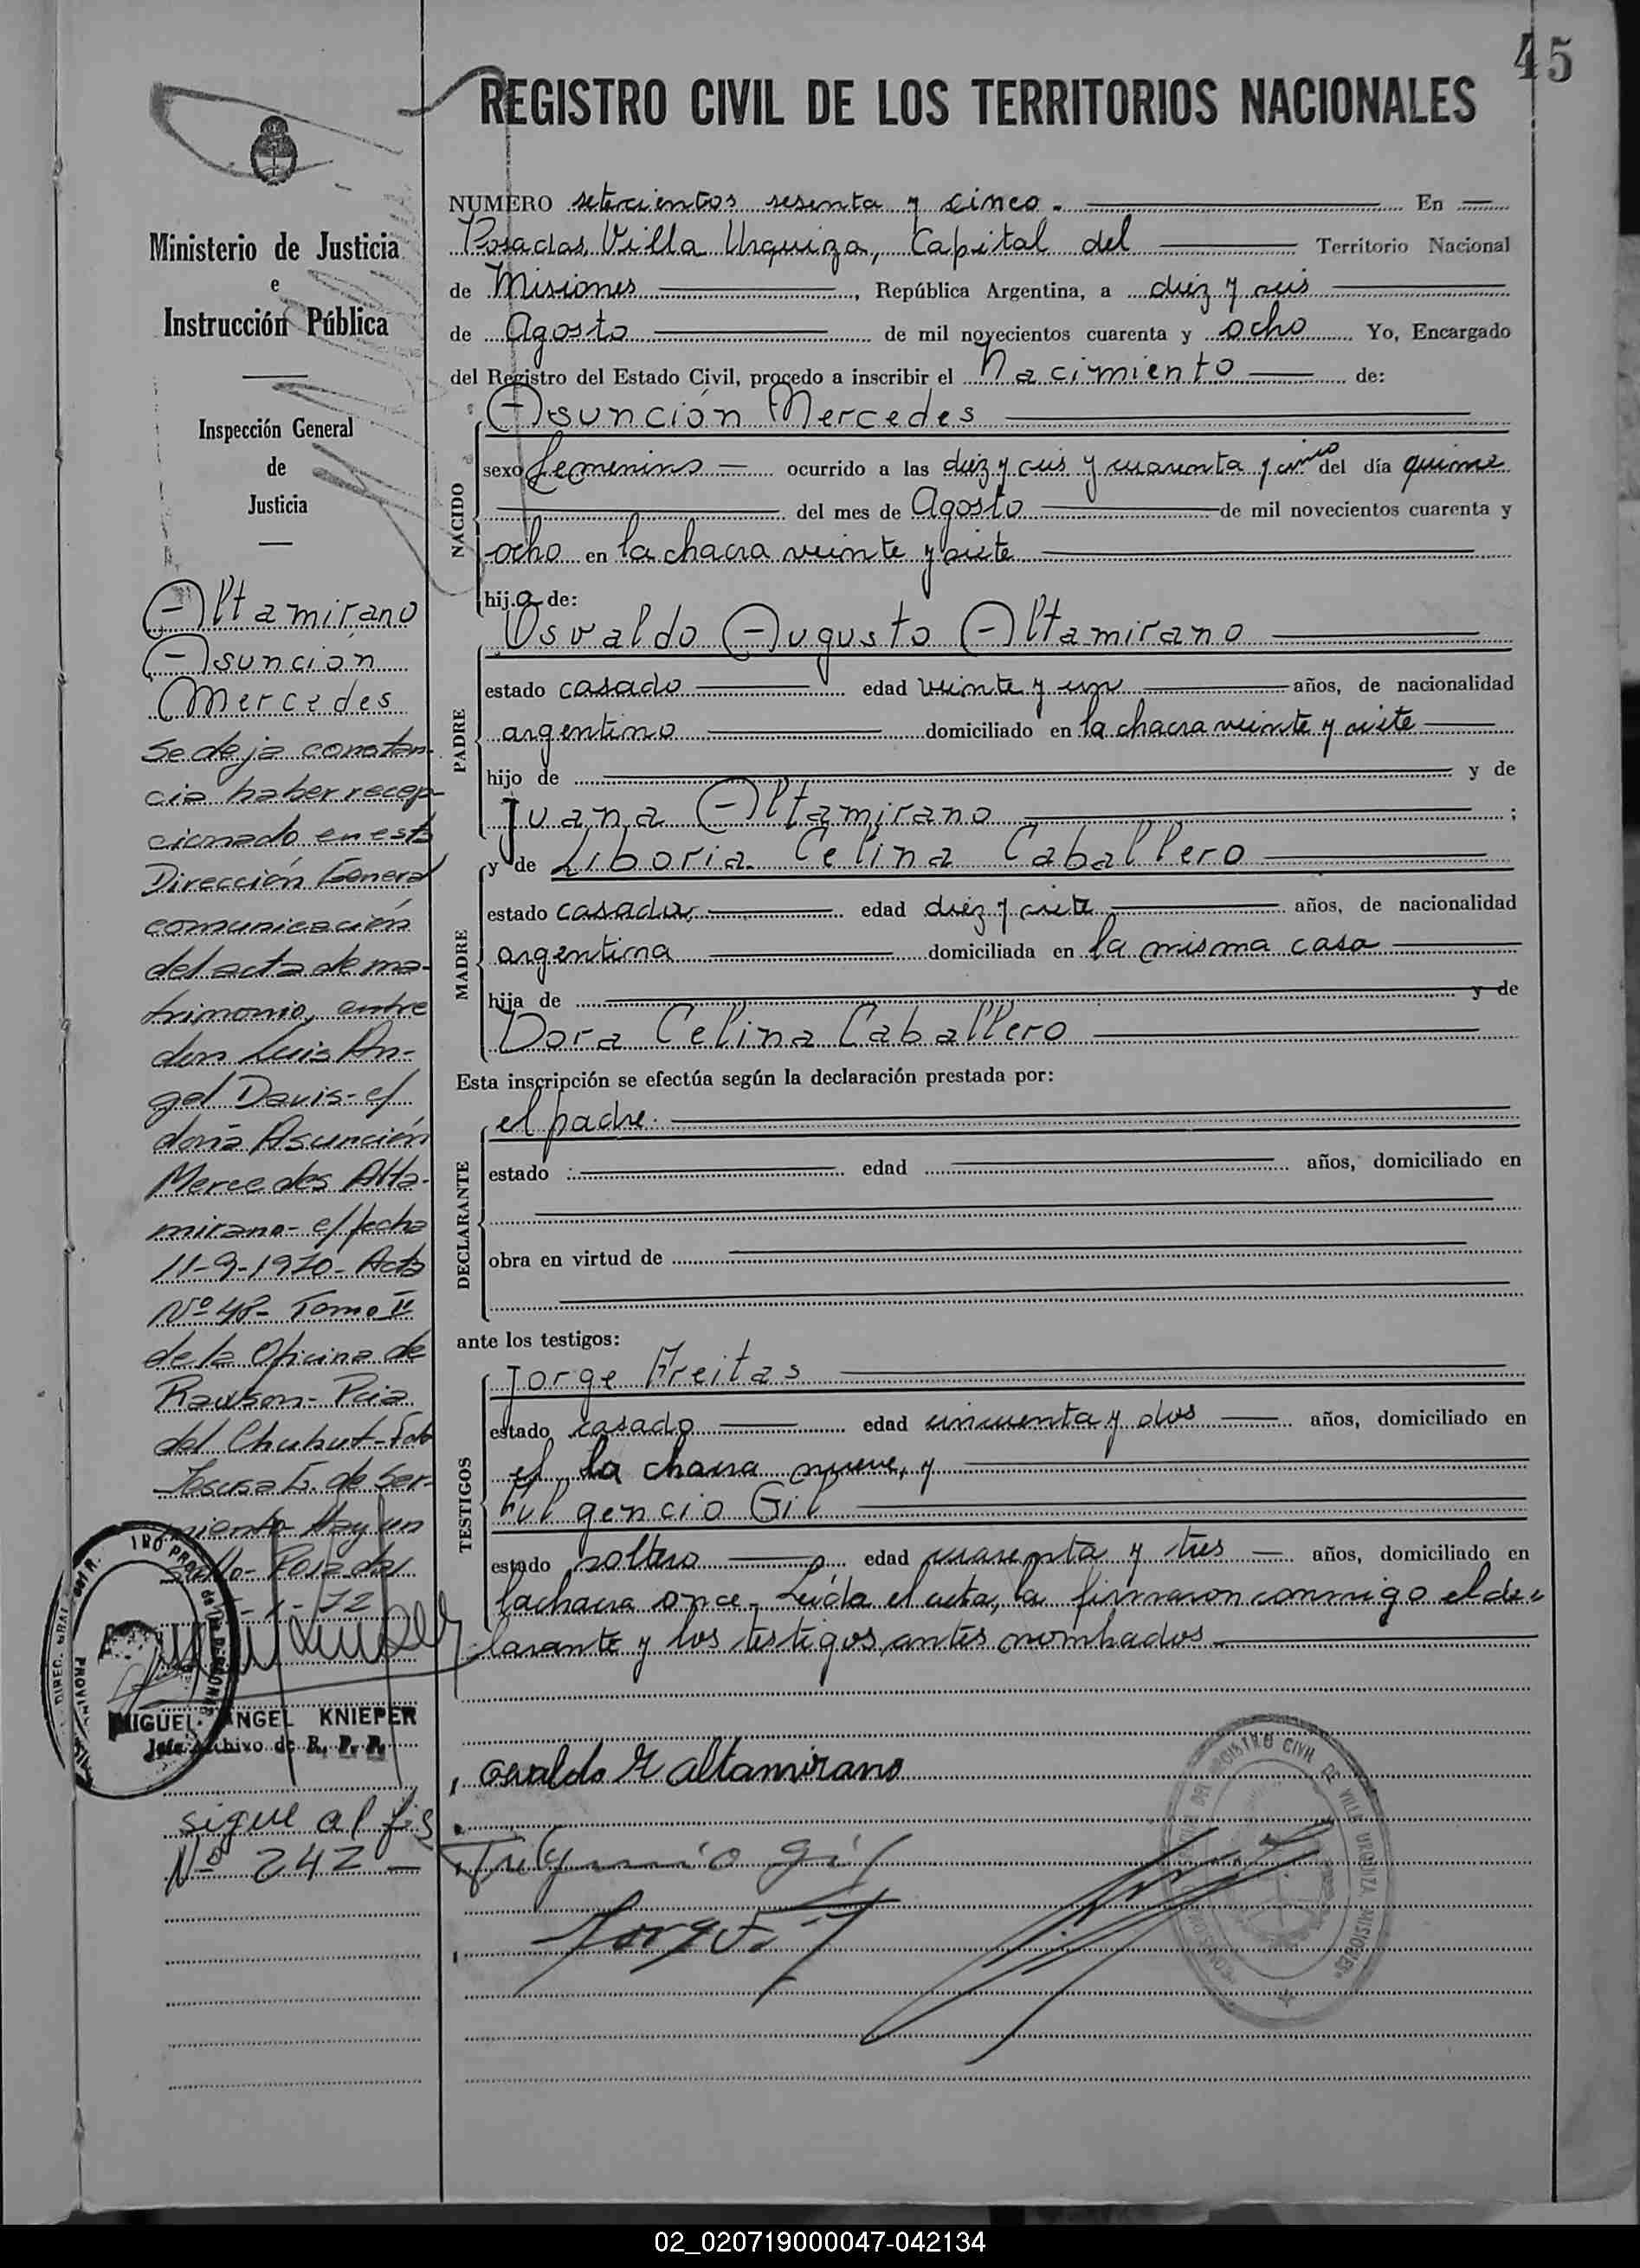 45
REGISTRO CIVIL DE LOS TERRITORIOS NACIONALES
Ministerio de Justicia
e
Instrucción Pública
Inspección General
de
Justicia
Altamirano
Asunción
Mercedes
Se deja constan-
cia haber recep-
cionado en esta
Dirección General
comunicación
del acta de ma-
trimonio, entre
don Luis An-
gel Davis- c/
doña Asunción
Mercedes Alta-
mirano- c/ fecha
11-9-1970- Acta
Nº 48- Tomo II
de la Oficina de
Rawson- Pcia
del Chubut- Fdo
de Sar-
miento- Hay un
sello- Posadas
-1-72
MIGUEL ANGEL KNIEPER
Jefe Archivo de R. P. P.
sigue al fis
Nº 242 -
NUMERO setecientos sesenta y cinco. En
Posadas, Villa Urquiza, Capital del Territorio Nacional
de Misiones, República Argentina, a diez y seis
de Agosto de mil novecientos cuarenta y ocho Yo, Encargado
del Registro del Estado Civil, procedo a inscribir el Nacimiento de:
NACIDO
Asunción Mercedes
sexo femenino ocurrido a las diez y seis y cuarenta y cinco del día quince
del mes de Agosto de mil novecientos cuarenta y
ocho en la chacra veinte y siete
hija de:
PADRE
Osvaldo Augusto Altamirano
estado casado edad veinte y un años, de nacionalidad
argentino domiciliado en la chacra veinte y siete
hijo de y de
Juana Altamirano ;
MADRE
y de Liboria Celina Caballero
estado casada, edad diez y siete años, de nacionalidad
argentina domiciliada en la misma casa
hija de y de
Dora Celina Caballero
Esta inscripción se efectúa según la declaración prestada por:
DECLARANTE
el padre.
estado edad años, domiciliado en
obra en virtud de
ante los testigos:
TESTIGOS
Jorge Freitas
estado casado edad cincuenta y dos años, domiciliado en
el la chacra nueve, y
Fulgencio Gil
estado soltero edad cuarenta y tres años, domiciliado en
la chacra once- Leída el acta, la firmaron conmigo el dec
larante y los testigos antes nombrados
Osvaldo A Altamirano
Fulgencio Gil
Jorge F.
REGISTRO CIVIL DE VILLA URQUIZA MISIONES
02_020719000047-042134